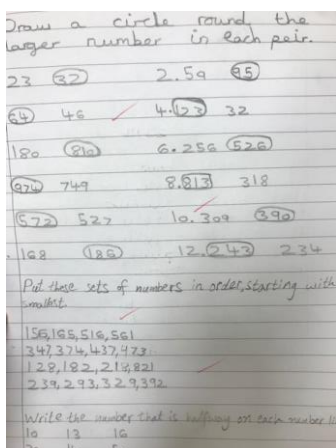 Draw a circle round the
larger number in each pair.
23 32 2.59 95
64 46 4.123 32
180 810 6.256 526
974 749 8.813 318
572 527 10.309 390
168 186 12.243 234
Put these sets of numbers in order, starting with
smallest.
156,165,516,561
347,374,437,473
128,182,218,821
239,293,329,392
Write the number that is halfway on each number
10 13 16